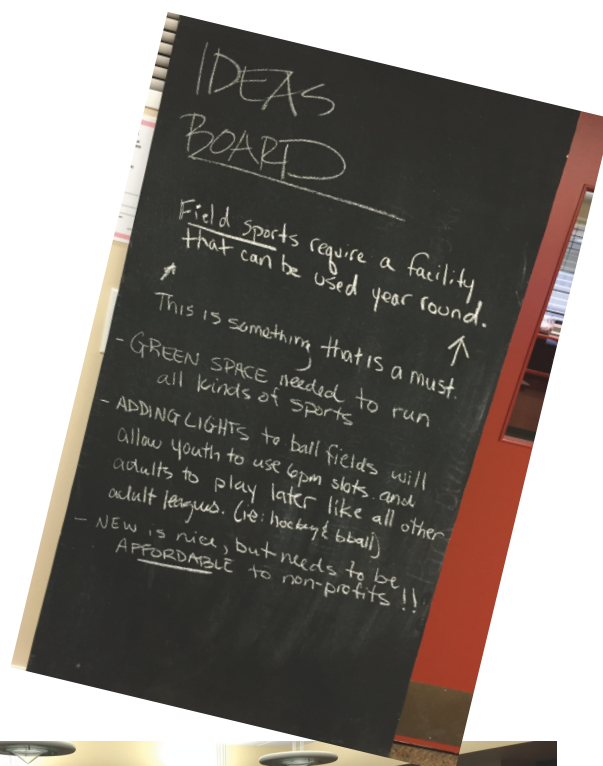 IDEAS
BOARD
Field sports require a facility
that can be used year round.
This is something that is a must.
- GREEN SPACE needed to run
all kinds of sports
- ADDING LIGHTS to ball fields will
allow youth to use 6pm slots and
adults to play later like all other
adult leagues. (ie: hockey & bball)
- NEW is nice, but needs to be
AFFORDABLE to non-profits!!